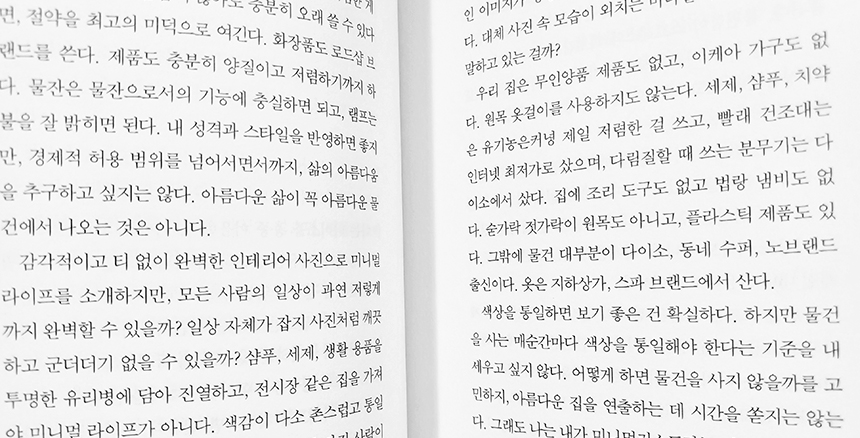 충분히 오래 쓸 수 있다
면, 절약을 최고의 미덕으로 여긴다. 화장품도 로드샵 브
랜드를 쓴다. 제품도 충분히 양질이고 저렴하기까지 하
다. 물잔은 물잔으로서의 기능에 충실하면 되고, 램프는
불을 잘 밝히면 된다. 내 성격과 스타일을 반영하면 좋지
만, 경제적 허용 범위를 넘어서면서까지, 삶의 아름다움
을 추구하고 싶지는 않다. 아름다운 삶이 꼭 아름다운 물
건에서 나오는 것은 아니다.
감각적이고 티 없이 완벽한 인테리어 사진으로 미니멀
라이프를 소개하지만, 모든 사람의 일상이 과연 저렇게
까지 완벽할 수 있을까? 일상 자체가 잡지 사진처럼 깨끗
하고 군더더기 없을 수 있을까? 샴푸, 세제, 생활 용품을
투명한 유리병에 담아 진열하고, 전시장 같은 집을 가져
야 미니멀 라이프가 아니다. 색감이 다소 촌스럽고 통일
사람이
인 이미지가
다. 대체 사진 속 모습이 외치는
말하고 있는 걸까?
우리 집은 무인양품 제품도 없고, 이케아 가구도 없
다. 원목 옷걸이를 사용하지도 않는다. 세제, 샴푸, 치약
은 유기농은커녕 제일 저렴한 걸 쓰고, 빨래 건조대는
인터넷 최저가로 샀으며, 다림질할 때 쓰는 분무기는 다
이소에서 샀다. 집에 조리 도구도 없고 법랑 냄비도 없
다. 숟가락 젓가락이 원목도 아니고, 플라스틱 제품도 있
다. 그밖에 물건 대부분이 다이소, 동네 수퍼, 노브랜드
출신이다. 옷은 지하상가, 스파 브랜드에서 산다.
색상을 통일하면 보기 좋은 건 확실하다. 하지만 물건
을 사는 매순간마다 색상을 통일해야 한다는 기준을 내
세우고 싶지 않다. 어떻게 하면 물건을 사지 않을까를 고
민하지, 아름다운 집을 연출하는 데 시간을 쏟지는 않는
다. 그래도 나는 내가